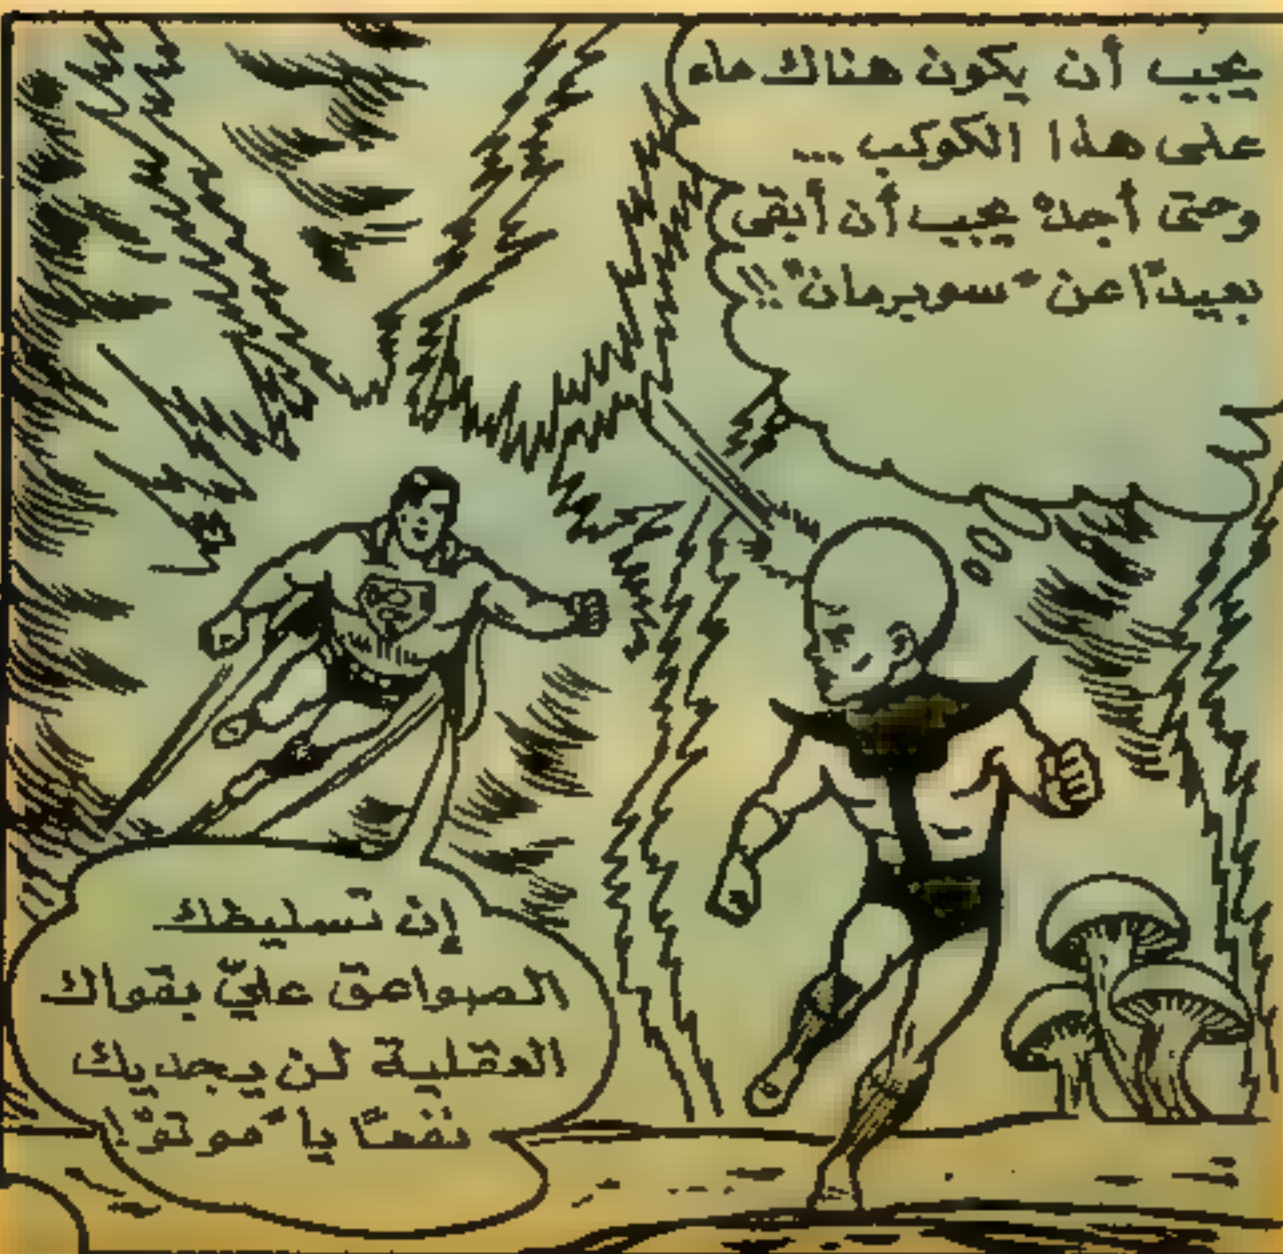 يجب أن يكون هناك ماء
على هذا الكوكب ...
وحتى أجدهُ يجب أن أبقى
بعيداً عن "سوبرمان"!!
إن تسليطك
الصواعق عليّ بقواك
العقلية لن يجديك
نفعاً يا "موتو"!